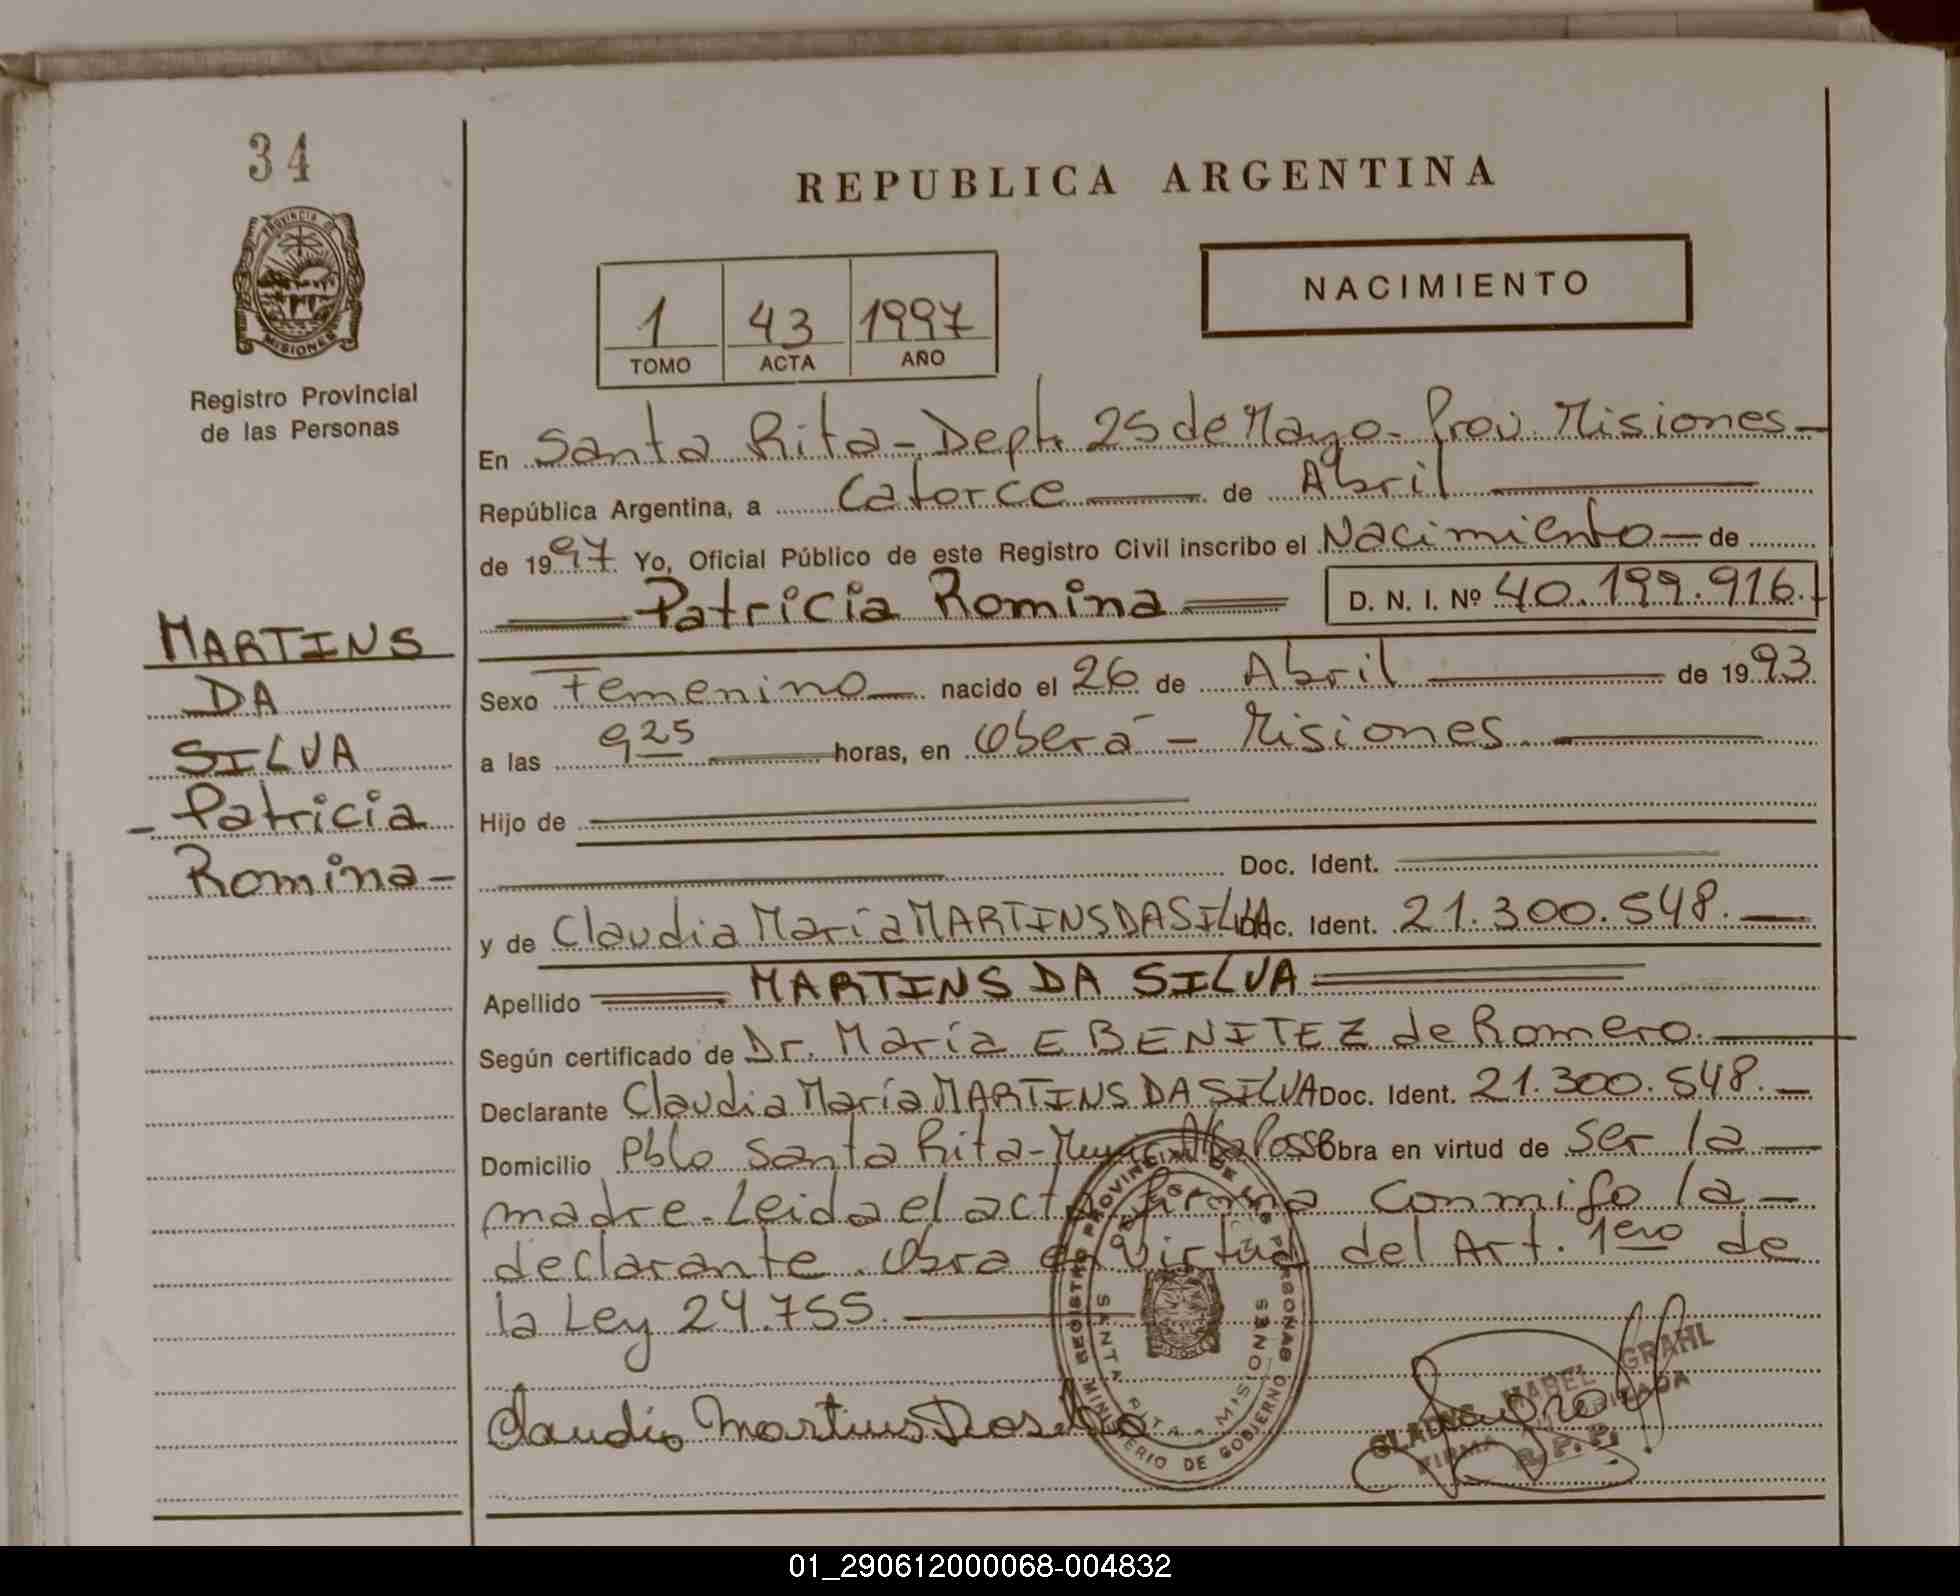 34
REPUBLICA ARGENTINA
PROVINCIA DE
MISIONES
NACIMIENTO
1 43 1997
TOMO ACTA AÑO
Registro Provincial
de las Personas
En Santa Rita - Dept. 25 de Mayo - Prov. Misiones -
República Argentina, a Catorce de Abril
de 1997 Yo, Oficial Público de este Registro Civil inscribo el Nacimiento de
Patricia Romina D. N. I. Nº 40.199.916.
MARTINS
DA
SILVA
- Patricia
Romina -
Sexo Femenino nacido el 26 de Abril de 1993
a las 9 25 horas, en Oberá - Misiones.
Hijo de
Doc. Ident.
y de Claudia María MARTINS DA SILVA Doc. Ident. 21.300.548. -
Apellido MARTINS DA SILVA
Según certificado de Dr. María E BENITEZ de Romero.
Declarante Claudia María MARTINS DA SILVA Doc. Ident. 21.300.548. -
Domicilio Pblo Santa Rita - Munic. Alba Posse Obra en virtud de ser la
madre. Leida el acta firma conmigo la -
declarante. Obra en virtud del Art. 1ero de
la Ley 24.755.
Claudia Martins Da Silva
REGISTRO PROVINCIAL DE LAS PERSONAS
SANTA RITA - MISIONES
MINISTERIO DE GOBIERNO
GLADYS MABEL GRAHL
FIRMA AUTORIZADA
R. P. P.
01_290612000068-004832